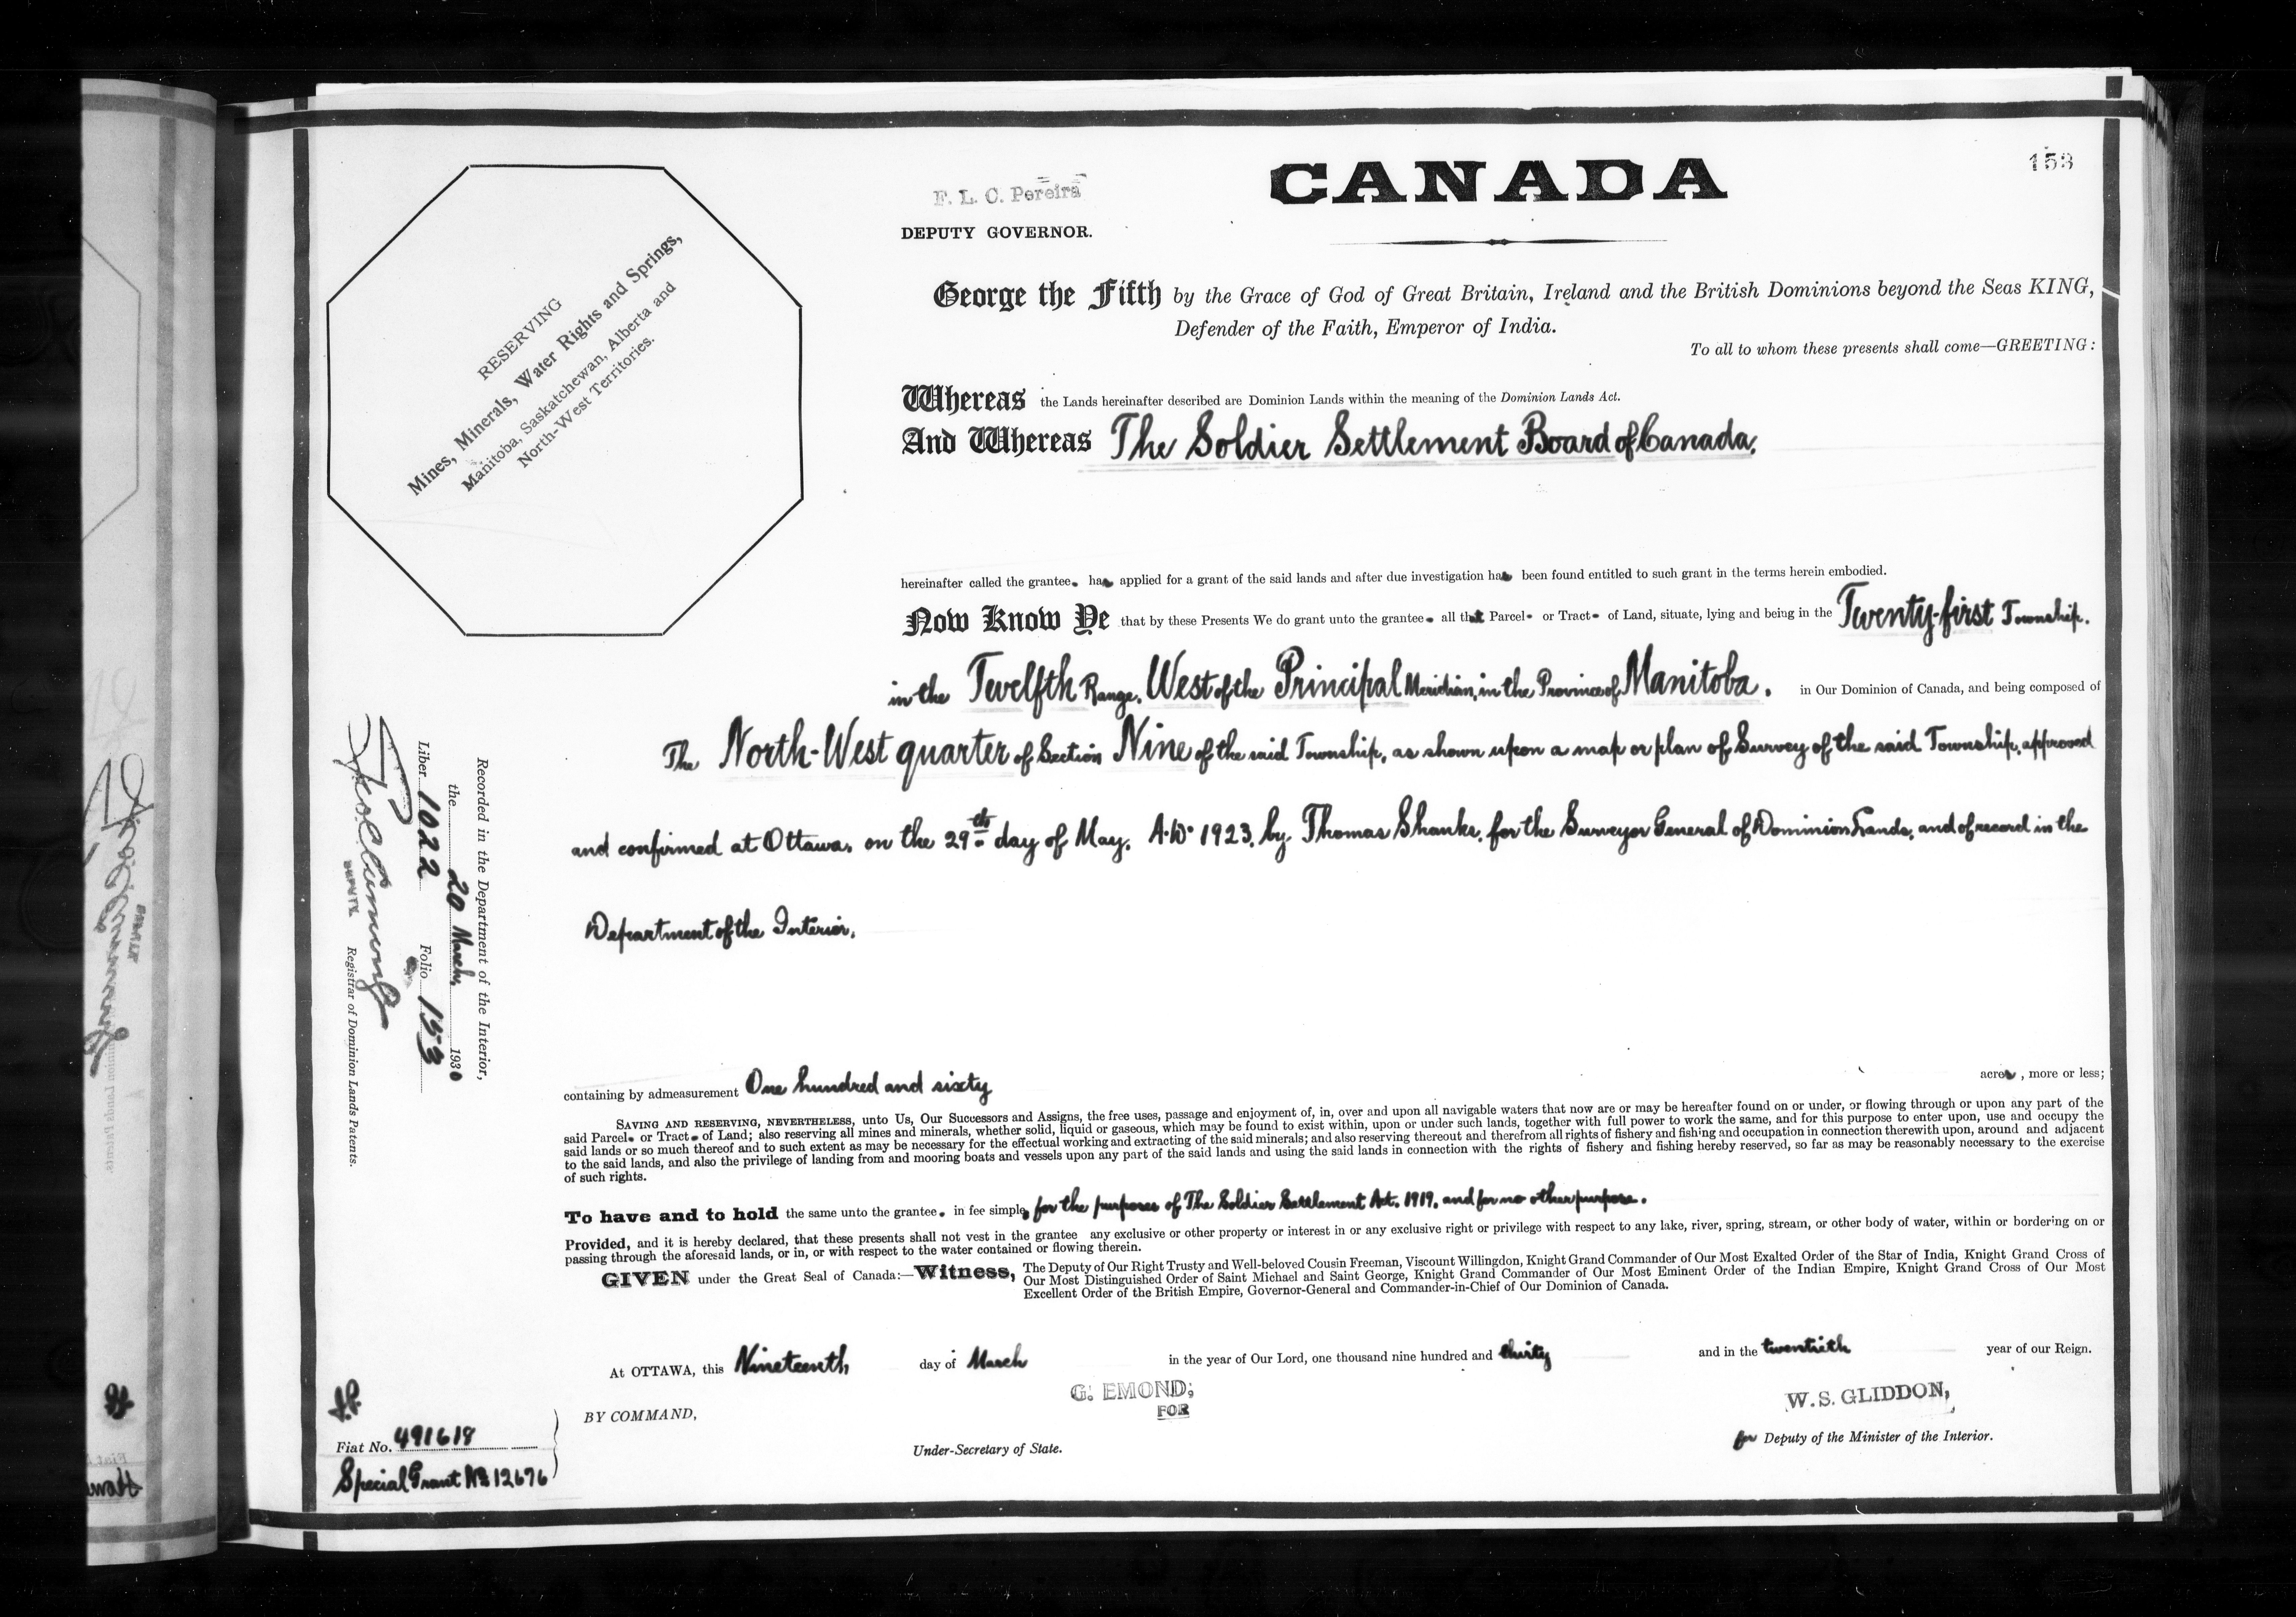 153
CANADA
F. L. C. Pereira
DEPUTY GOVERNOR.
RESERVING
Mines, Minerals, Water Rights and Springs,
Manitoba, Saskatchewan, Alberta and
North-West Territories.
George the Fifth by the Grace of God of Great Britain, Ireland and the British Dominions beyond the Seas KING,
Defender of the Faith, Emperor of India.
To all to whom these presents shall come—GREETING:
Whereas the Lands hereinafter described are Dominion Lands within the meaning of the Dominion Lands Act.
And Whereas The Soldier Settlement Board of Canada,
hereinafter called the grantee has applied for a grant of the said lands and after due investigation has been found entitled to such grant in the terms herein embodied.
Now Know Ye that by these Presents We do grant unto the grantee all that Parcel or Tract of Land, situate, lying and being in the Twenty-first Township,
in the Twelfth Range, West of the Principal Meridian, in the Province of Manitoba, in Our Dominion of Canada, and being composed of
The North-West quarter of Section Nine of the said Township, as shown upon a map or plan of Survey of the said Township, approved
and confirmed at Ottawa, on the 29th day of May, A.D. 1923, by Thomas Shanks, for the Surveyor General of Dominion Lands, and of record in the
Department of the Interior,
Recorded in the Department of the Interior,
the 20 March, 1930
Liber 1022 Folio 153
DEPUTY Registrar of Dominion Lands Patents.
containing by admeasurement One hundred and sixty acres, more or less;
SAVING AND RESERVING, NEVERTHELESS, unto Us, Our Successors and Assigns, the free uses, passage and enjoyment of, in, over and upon all navigable waters that now are or may be hereafter found on or under, or flowing through or upon any part of the
said Parcel or Tract of Land; also reserving all mines and minerals, whether solid, liquid or gaseous, which may be found to exist within, upon or under such lands, together with full power to work the same, and for this purpose to enter upon, use and occupy the
said lands or so much thereof and to such extent as may be necessary for the effectual working and extracting of the said minerals; and also reserving thereout and therefrom all rights of fishery and fishing and occupation in connection therewith upon, around and adjacent
to the said lands, and also the privilege of landing from and mooring boats and vessels upon any part of the said lands and using the said lands in connection with the rights of fishery and fishing hereby reserved, so far as may be reasonably necessary to the exercise
of such rights.
To have and to hold the same unto the grantee in fee simple, for the purposes of The Soldier Settlement Act, 1919, and for no other purpose.
Provided, and it is hereby declared, that these presents shall not vest in the grantee any exclusive or other property or interest in or any exclusive right or privilege with respect to any lake, river, spring, stream, or other body of water, within or bordering on or
passing through the aforesaid lands, or in, or with respect to the water contained or flowing therein.
GIVEN under the Great Seal of Canada:—Witness, The Deputy of Our Right Trusty and Well-beloved Cousin Freeman, Viscount Willingdon, Knight Grand Commander of Our Most Exalted Order of the Star of India, Knight Grand Cross of
Our Most Distinguished Order of Saint Michael and Saint George, Knight Grand Commander of Our Most Eminent Order of the Indian Empire, Knight Grand Cross of Our Most
Excellent Order of the British Empire, Governor-General and Commander-in-Chief of Our Dominion of Canada.
At OTTAWA, this Nineteenth day of March in the year of Our Lord, one thousand nine hundred and thirty and in the twentieth year of our Reign.
BY COMMAND,
G. EMOND,
FOR
Under-Secretary of State.
W. S. GLIDDON,
for Deputy of the Minister of the Interior.
Fiat No. 491618
Special Grant No 12676